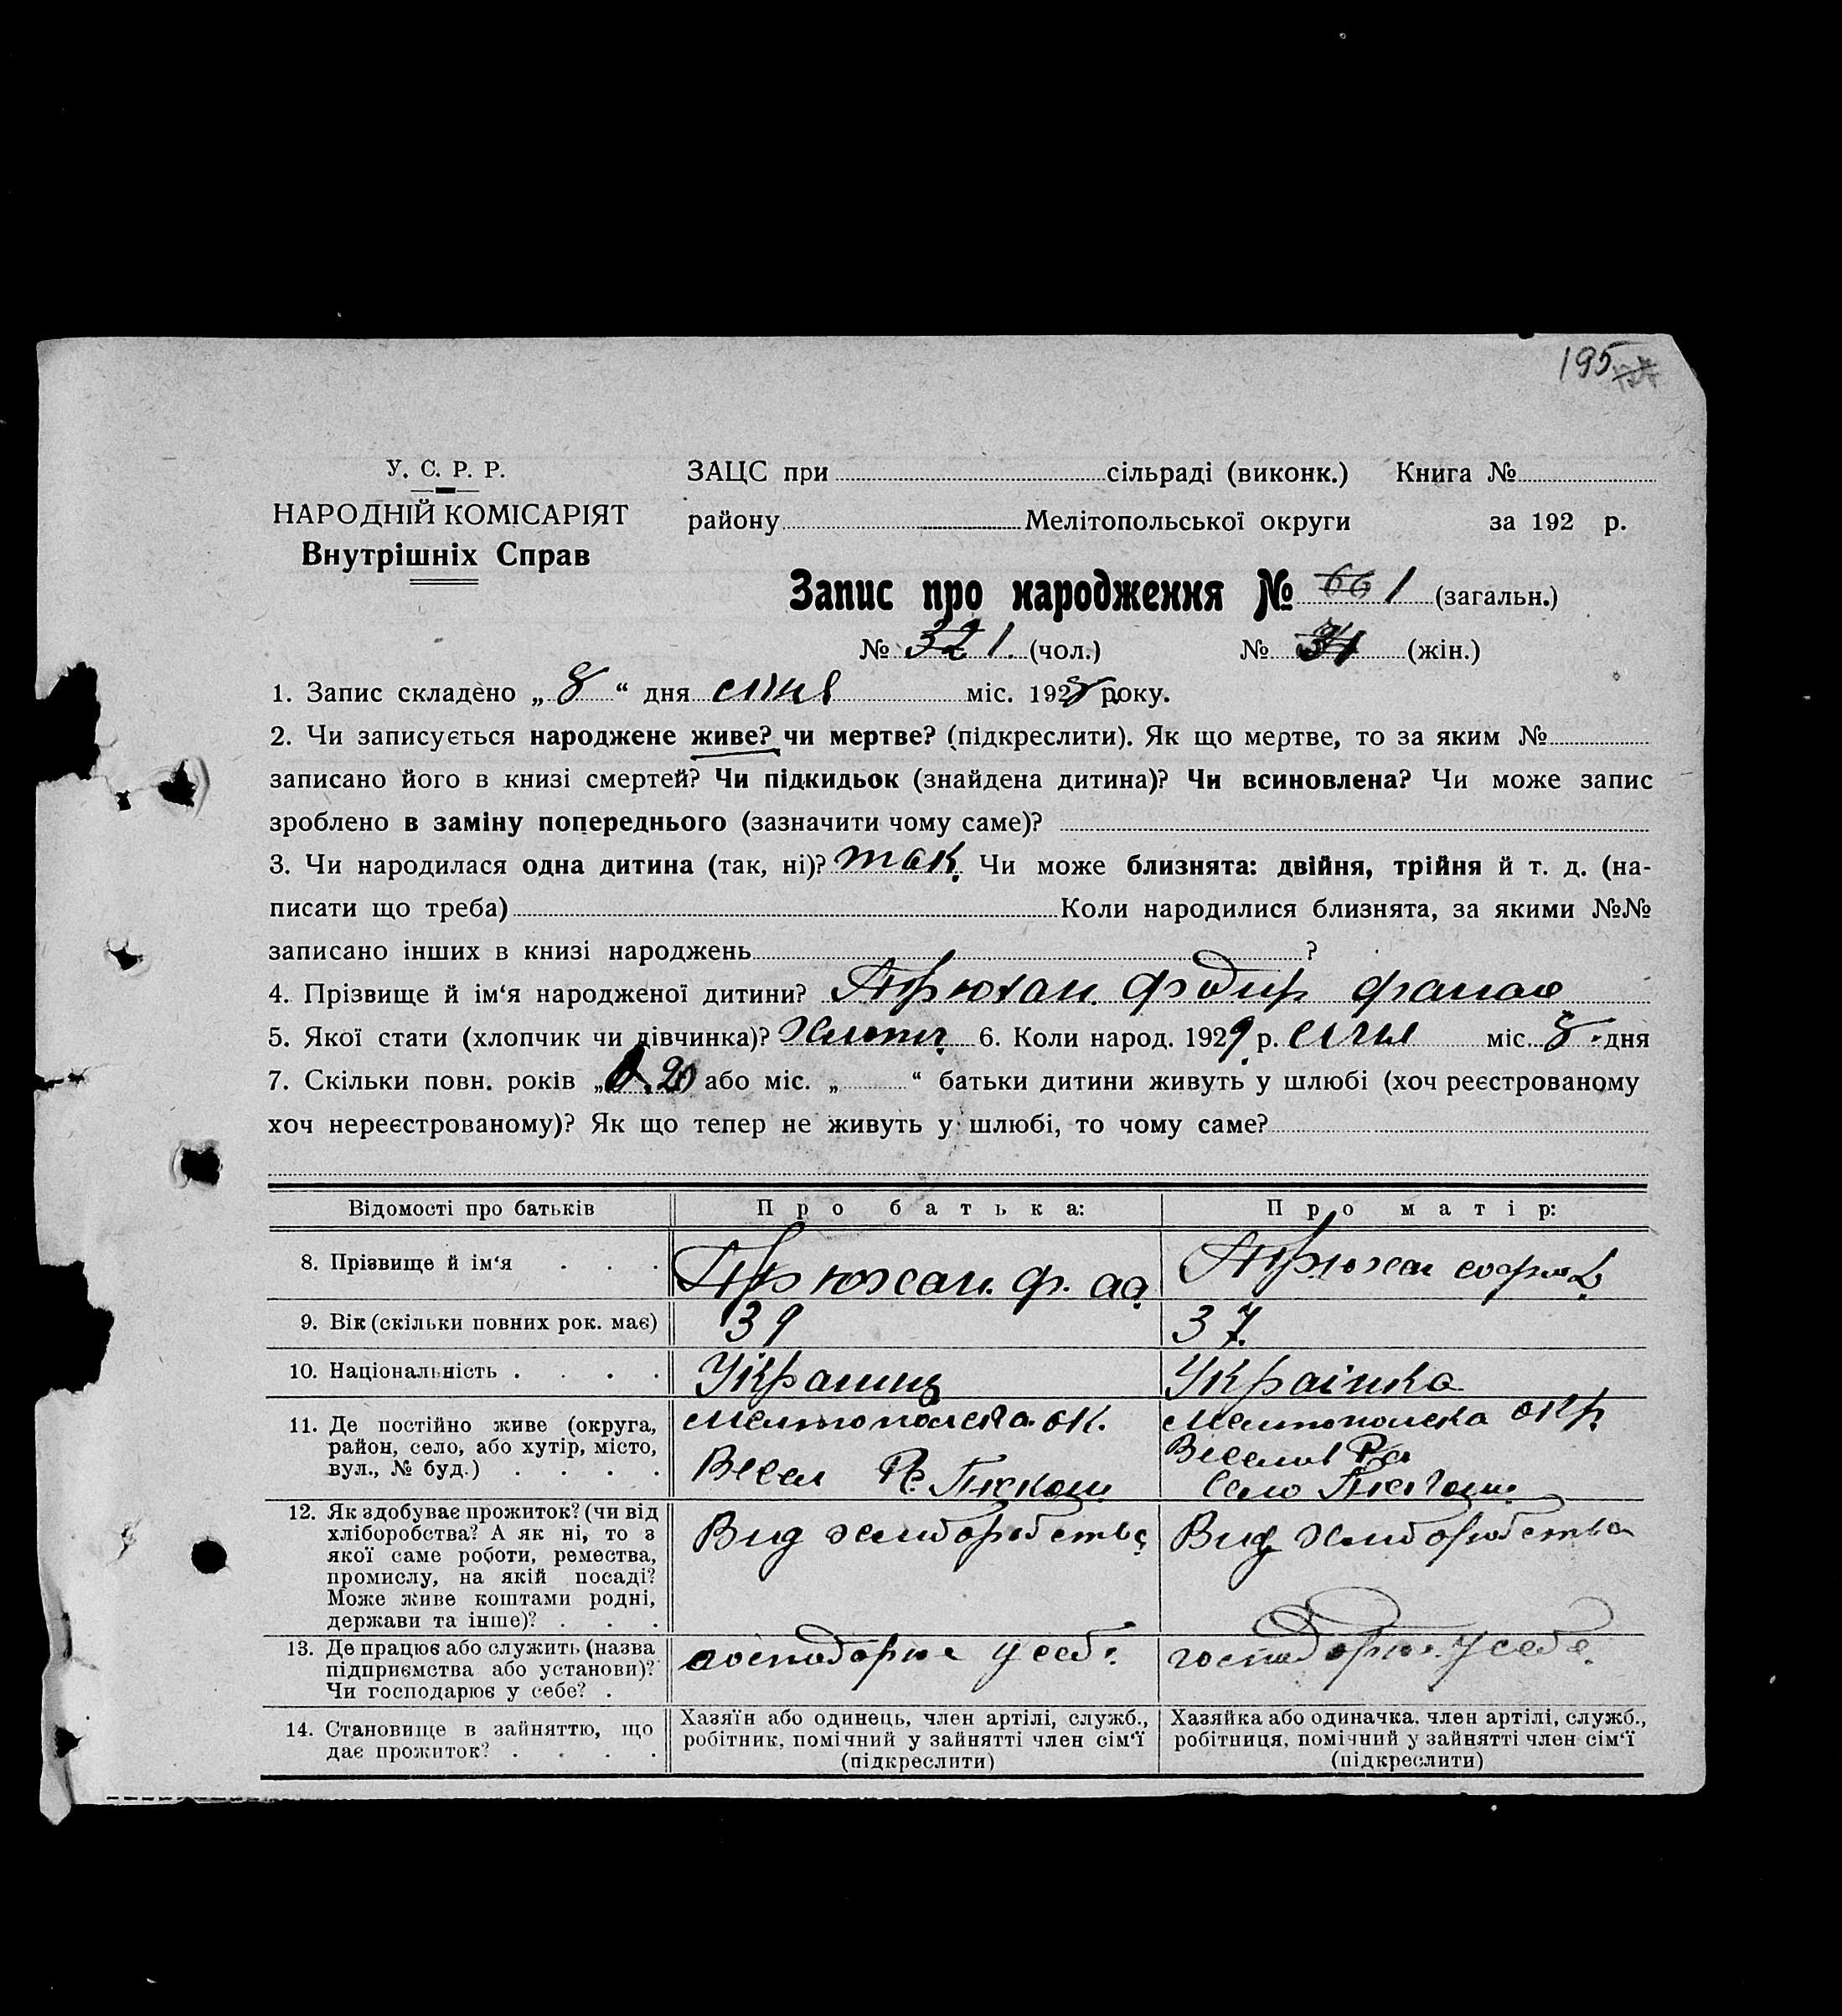 195
У. С. Р. Р.
НАРОДНІЙ КОМІСАРІЯТ
Внутрішніх Справ
ЗАЦС при сільраді (виконк.) Книга №
району Мелітопольської округи за 192 р.
Запис про народження № 66 1 (загальн.)
№ 32 1. (чол.) № (жін.)
1. Запис складено „ 8 “ дня січня міс. 1928 року.
2. Чи записується народжене живе? чи мертве? (підкреслити). Як що мертве, то за яким №
записано його в книзі смертей? Чи підкидьок (знайдена дитина)? Чи всиновлена? Чи може запис
зроблено в заміну попереднього (зазначити чому саме)?
3. Чи народилася одна дитина (так, ні)? так. Чи може близнята: двійня, трійня й т. д. (на-
писати що треба) Коли народилися близнята, за якими №№
записано інших в книзі народжень ?
4. Прізвище й ім‘я народженої дитини? Трюхан. Фэдир
5. Якої стати (хлопчик чи дівчинка)? 6. Коли народ. 1929 р. січня міс. 8. дня
7. Скільки повн. років „ 20 або міс. „ “ батьки дитини живуть у шлюбі (хоч реєстрованому
хоч нереєстрованому)? Як що тепер не живуть у шлюбі, то чому саме?
Відомості про батьків Про батька: Про матір:
8. Прізвище й ім‘я . . . Трюхан. Ф. Трюхан
9. Вік (скільки повних рок. має) 39 37.
10. Національність . . . . Украинц Украінка
11. Де постійно живе (округа,
район, село, або хутір, місто,
вул., № буд.) . . . .
Мелитопольска ок.
Весел
Мелитопольска окр.
Село
12. Як здобуває прожиток? (чи від
хліборобства? А як ні, то з
якої саме роботи, ремества,
промислу, на якій посаді?
Може живе коштами родні,
держави та інше)? . . .
Вид хлиборобства
Вид хлиборобства
13. Де працює або служить (назва
підприємства або установи)?
Чи господарює у себе? .
господорює у себе
господорює у себе.
14. Становище в зайняттю, що
дає прожиток? . . . .
Хазяїн або одинець, член артілі, служб.,
робітник, помічний у зайнятті член сім‘ї
(підкреслити)
Хазяйка або одиначка, член артілі, служб.,
робітниця, помічний у зайнятті член сім‘ї
(підкреслити)